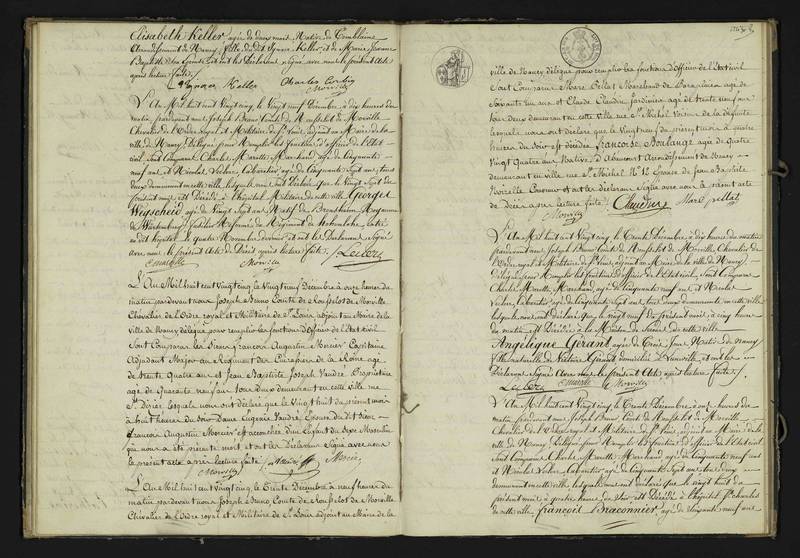 Elisabeth Keller agée de deux mois Native de
Arrondissement de Nancy, fille dudit Ignace Keller, et de Marie Jeanne
Baptiste et ont les Déclarans signé avec nous le présent Acte
après lecture faite.
Ignace Keller Charles
Morville
L'An Mil huit cent Vingt cinq, le Vingt neuf Décembre, à dix heures du
matin, pardevant nous Joseph Comte de Rousselot de Morville
Chevalier de l'Ordre Royal et Militaire de St Louis, adjoint au Maire de la
ville de Nancy, Délégué pour Remplir les fonctions d'officier de l'Etat
civil, sont Comparus Charles Marette Marchand agé de Cinquante
neuf ans et Nicolas Leclerc, Cabaretier agé de Cinquante Sept ans, tous
deux demeurant en cette ville lesquels nous ont Déclaré que le Vingt sept du
présent mois est Décédé à l'hopital Militaire de cette ville Georges
Wegscheid agé de Vingt Sept ans Natif de Royaume
de Würtemberg, fusilier Reformé du Régiment de Hohenlohe, entré
audit hopital le quatre Novembre dernier, et ont les Déclarans Signé
avec nous le présent Acte de Décès après lecture faite. Leclerc
Morville
L'An Mil huit cent Vingt cinq, le Vingt neuf Décembre à onze heures du
matin pardevant nous Joseph Comte de Rousselot de Morville
Chevalier de l'Ordre royal et Militaire de St Louis adjoint au Maire de la
Ville de Nancy délégué pour remplir les fonctions d'officier de l'Etat civil
Sont Comparus les Sieurs françois Augustin Mercier Capitaine
Adjudant Major au Régiment des Cuirassiers de la Reine agé
de trente quatre ans et Jean Baptiste Joseph Vaudré Propriétaire
agé de Quarante neuf ans tous Deux demeurant en cette ville rue
St Dizier lesquels nous ont déclaré que le Vingt huit du présent mois
à huit heures du Soir Dame Eugénie Vaudré Epouse dudit Sieur
françois Augustin Mercier est accouchée d'un Enfant du sexe Masculin
qui nous a été présenté mort et ont les Déclarans Signé avec nous
le présent acte après lecture faite. Mercier
Morville
L'An Mil huit cent Vingt cinq, le trente Décembre à neuf heures du
matin pardevant nous Joseph Comte de Rousselot de Morville
Chevalier de l'Ordre royal et Militaire de St Louis adjoint au Maire de la
ville de Nancy délégué pour remplir les fonctions d'officier de l'Etat civil
Sont Comparus Marc Pellat Marchand de Parapluies agé de
Soixante un ans et Claude Claudin Jardinier agé de trente neuf ans
tous deux demeurant en cette ville rue St Michel Voisins de la Défunte
lesquels nous ont déclaré que le Vingt neuf du présent mois à quatre
heures du Soir est décédée Françoise Boulange agée de Quatre
Vingt Quatre ans Native d'Abaucourt Arrondissement de Nancy
demeurant en cette ville rue St Michel No 12 Epouse de Jean Baptiste
et ont les déclarans Signé avec nous le présent acte
de Décès après lecture faite. Claudin Marc pellat
Morville
L'An Mil huit cent Vingt cinq le trente Décembre, à dix heures du matin
pardevant nous Joseph Comte de Rousselot de Morville, Chevalier de
l'Ordre royal et Militaire de St Louis, adjoint au Maire de la ville de Nancy,
délégué pour Remplir les fonctions d'officier de l'Etat civil, Sont Comparus
Charles Marette, Marchand, agé de Cinquante neuf ans et Nicolas
Leclerc, Cabaretier agé de Cinquante Sept ans, tous deux demeurant en cette ville
lesquels nous ont déclaré que le vingt neuf du présent mois, à cinq heures
du matin est Décédée à la Maison de Secours de cette ville
Angélique Gérant agée de trois Jours Native de Nancy
fille naturelle de Victoire Gérant domiciliée à Lunéville, et ont les
Déclarans Signé avec nous le présent Acte après lecture faite.
Leclerc Morville
L'An Mil huit cent Vingt cinq le trente Décembre à onze heures du
matin, pardevant nous Joseph Comte de Rousselot de Morville
Chevalier de l'Ordre royal et Militaire de St Louis, adjoint au Maire de la
ville de Nancy, Délégué pour Remplir les fonctions d'officier de l'Etat civil
Sont Comparus Charles Marette Marchand agé de Cinquante neuf ans
et Nicolas Leclerc, Cabaretier agé de Cinquante Sept ans tous deux
demeurant en cette ville lesquels nous ont déclaré que le vingt huit du
présent mois à quatre heures du Soir est Décédé à l'hopital St Charles
de cette ville, François Braconnier agé de soixante neuf ans